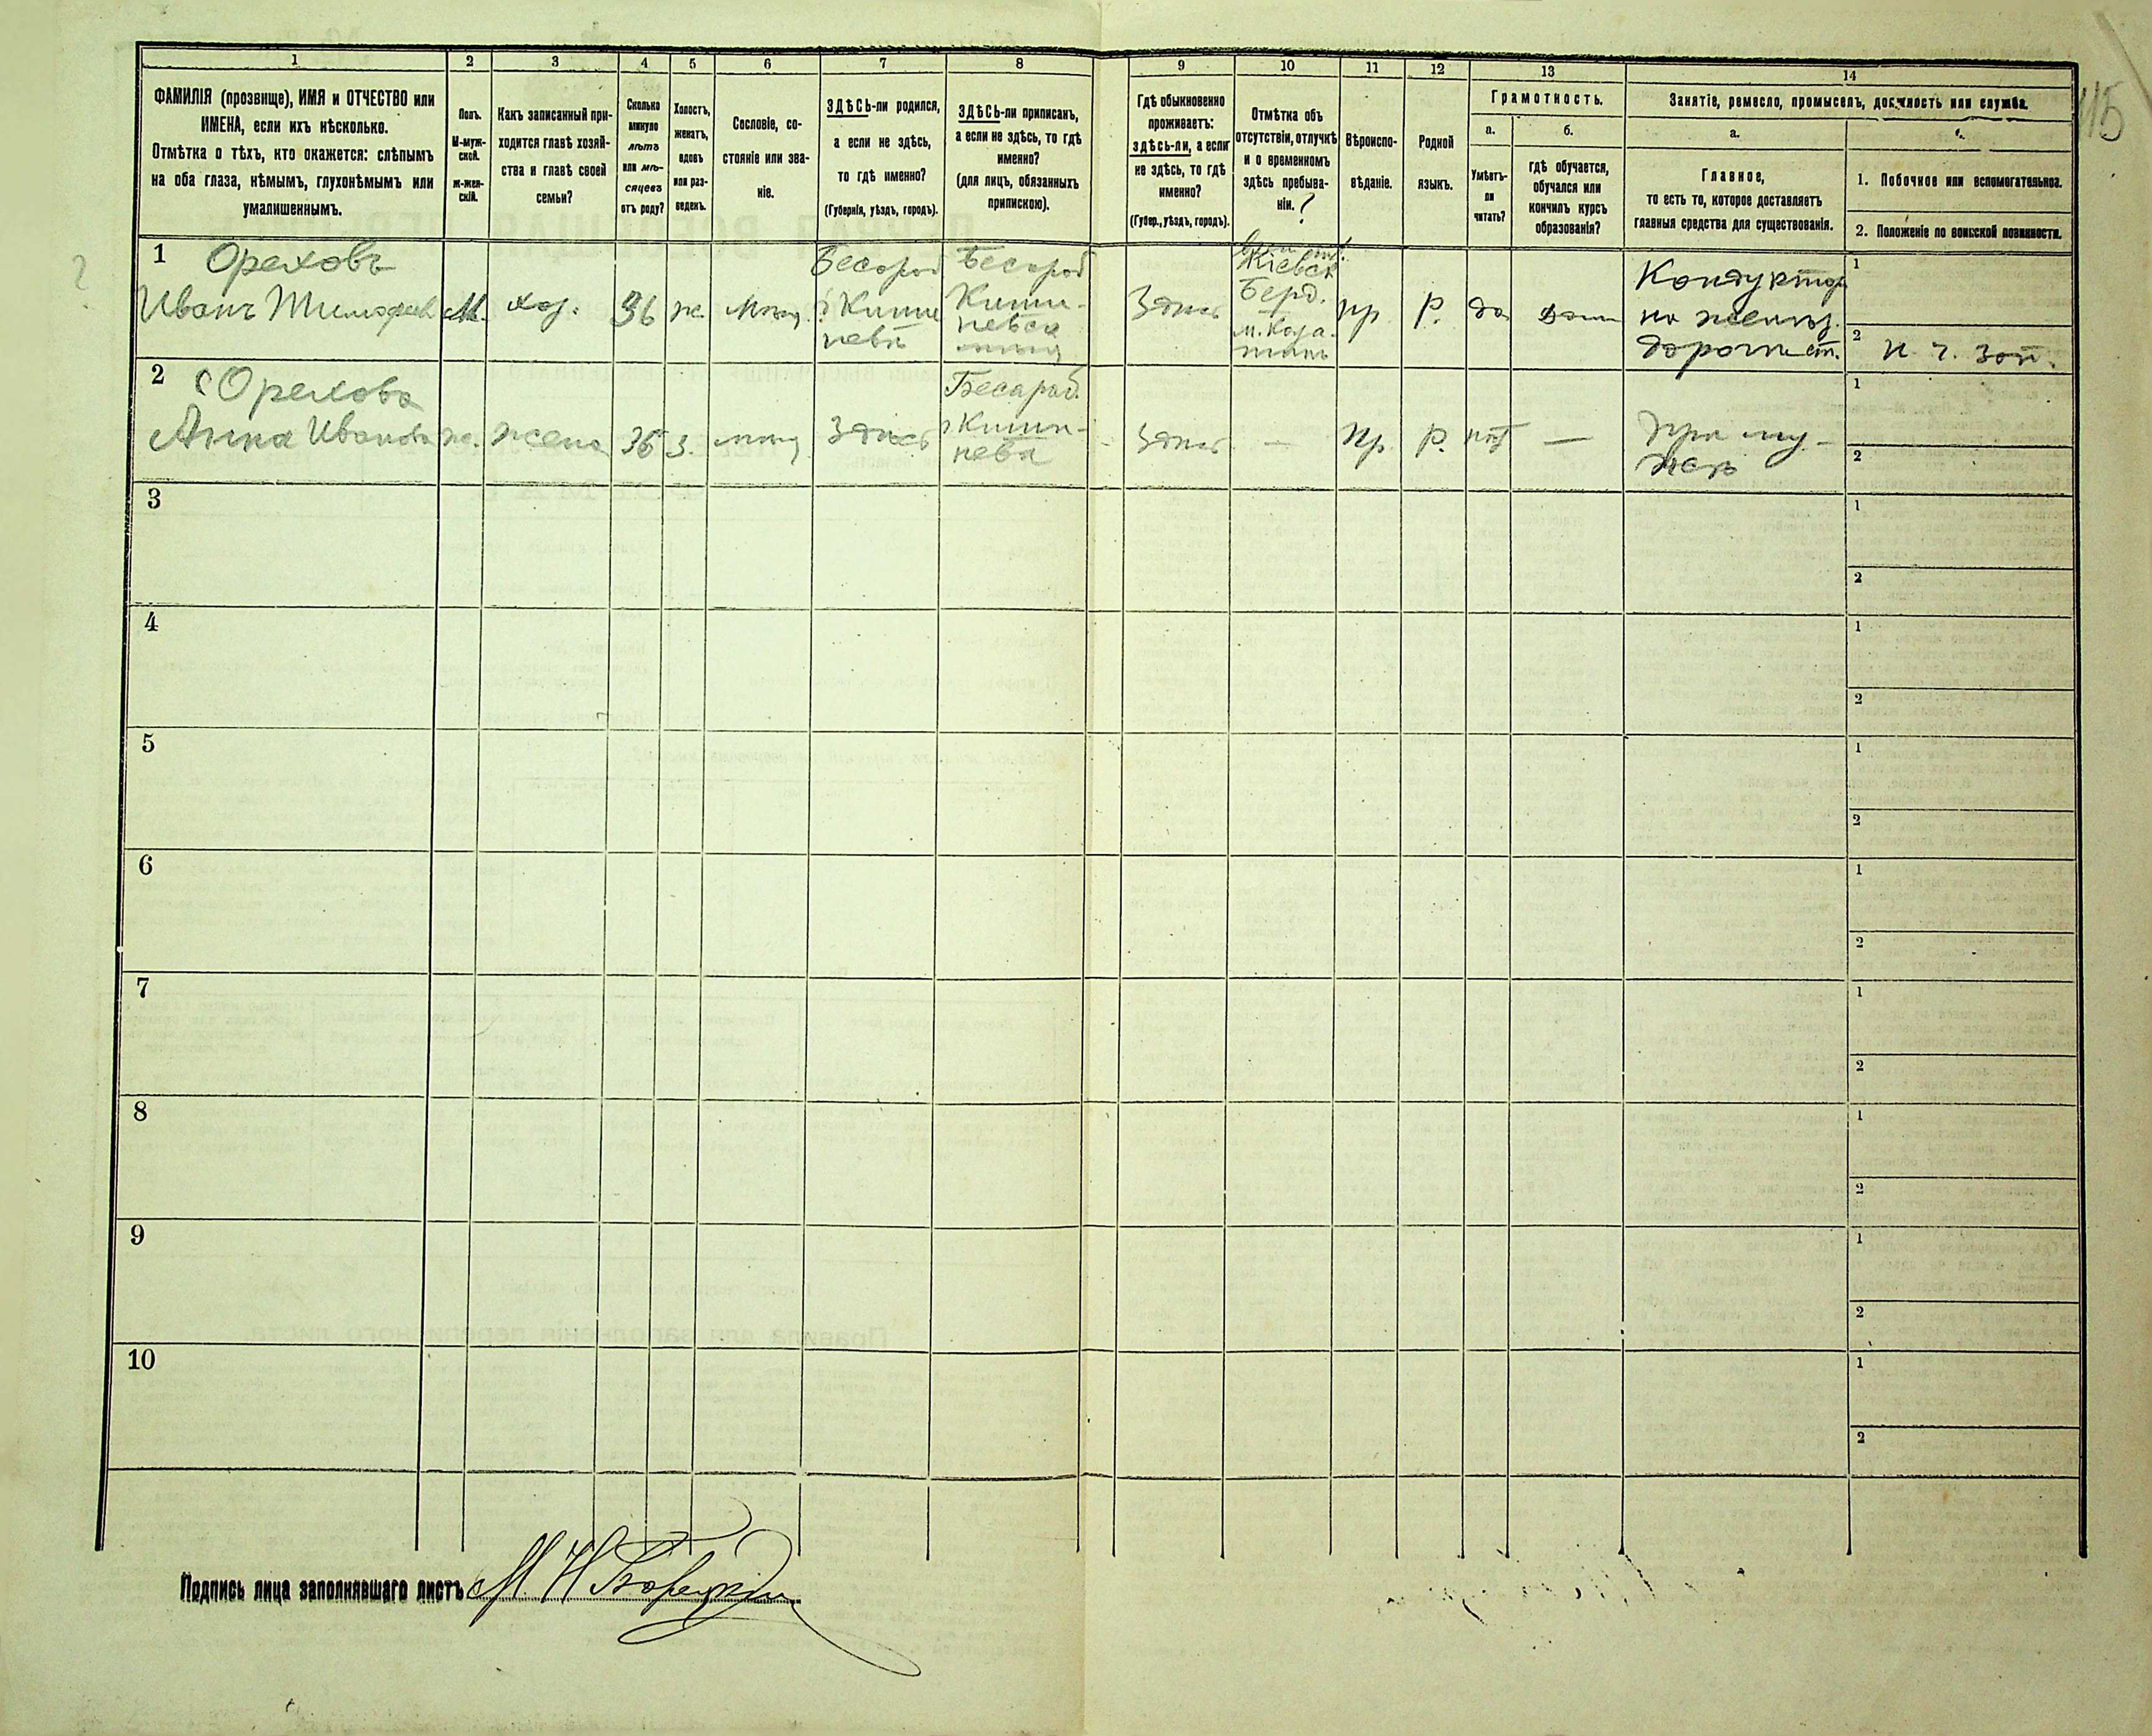 1 2 3 4 5 6 7 8 9 10 11 12 13 14
115
ФАМИЛІЯ (прозвище), ИМЯ и ОТЧЕСТВО или
ИМЕНА, если ихъ нѣсколько.
Отмѣтка о тѣхъ, кто окажется: слѣпымъ
на оба глаза, нѣмымъ, глухонѣмымъ или
умалишеннымъ.
Полъ.
М-муж-
ской.
Ж-жен-
скій.
Какъ записанный при-
ходится главѣ хозяй-
ства и главѣ своей
семьи?
Сколько
минуло
лѣтъ
или мѣ-
сяцевъ
отъ роду?
Холостъ,
женатъ,
вдовъ
или раз-
веденъ.
Сословіе, со-
стояніе или зва-
ніе.
ЗДѢСЬ-ли родился,
а если не здѣсь,
то гдѣ именно?
(Губернія, уѣздъ, городъ).
ЗДѢСЬ-ли приписанъ,
а если не здѣсь, то гдѣ
именно?
(для лицъ, обязанныхъ
припискою).
Гдѣ обыкновенно
проживаетъ:
здѣсь-ли, а если
не здѣсь, то гдѣ
именно?
(Губер., уѣздъ, городъ).
Отмѣтка объ
отсутствіи, отлучкѣ
и о временномъ
здѣсь пребыва-
ніи. ?
Вѣроиспо-
вѣданіе.
Родной
языкъ.
Грамотность.
а.
Умѣетъ-
ли
читать?
б.
гдѣ обучается,
обучался или
кончилъ курсъ
образованія?
Занятіе, ремесло, промыселъ, должность или служба.
а.
Главное,
то есть то, которое доставляетъ
главныя средства для существованія.
1. Побочное или вспомогательное.
2. Положеніе по воинской повинности.
?
1 Ореховъ
Иванъ Тимофеев
М.
хоз.
36
ж.
мѣщ.
Бесараб
г. Киши
невѣ
Бесараб
Киши-
невск
Здѣсь
Кіевск
Берд.
м. Каза-
тинъ
пр
Р.
да
дома
Кондуктор
на желѣз.
дороги ст.
1
2 н. ч. зап.
2 Орехова
Анна Иванова
ж.
жена
36
з.
мѣщ
Здѣсь
Бесараб.
г Киши-
нева
Здѣсь
—
пр.
Р.
нѣт
—
При му-
жѣ
1
2
3
1
2
4
1
2
5
1
2
6
1
2
7
1
2
8
1
2
9
1
2
10
1
2
Подпись лица заполнявшаго листъ